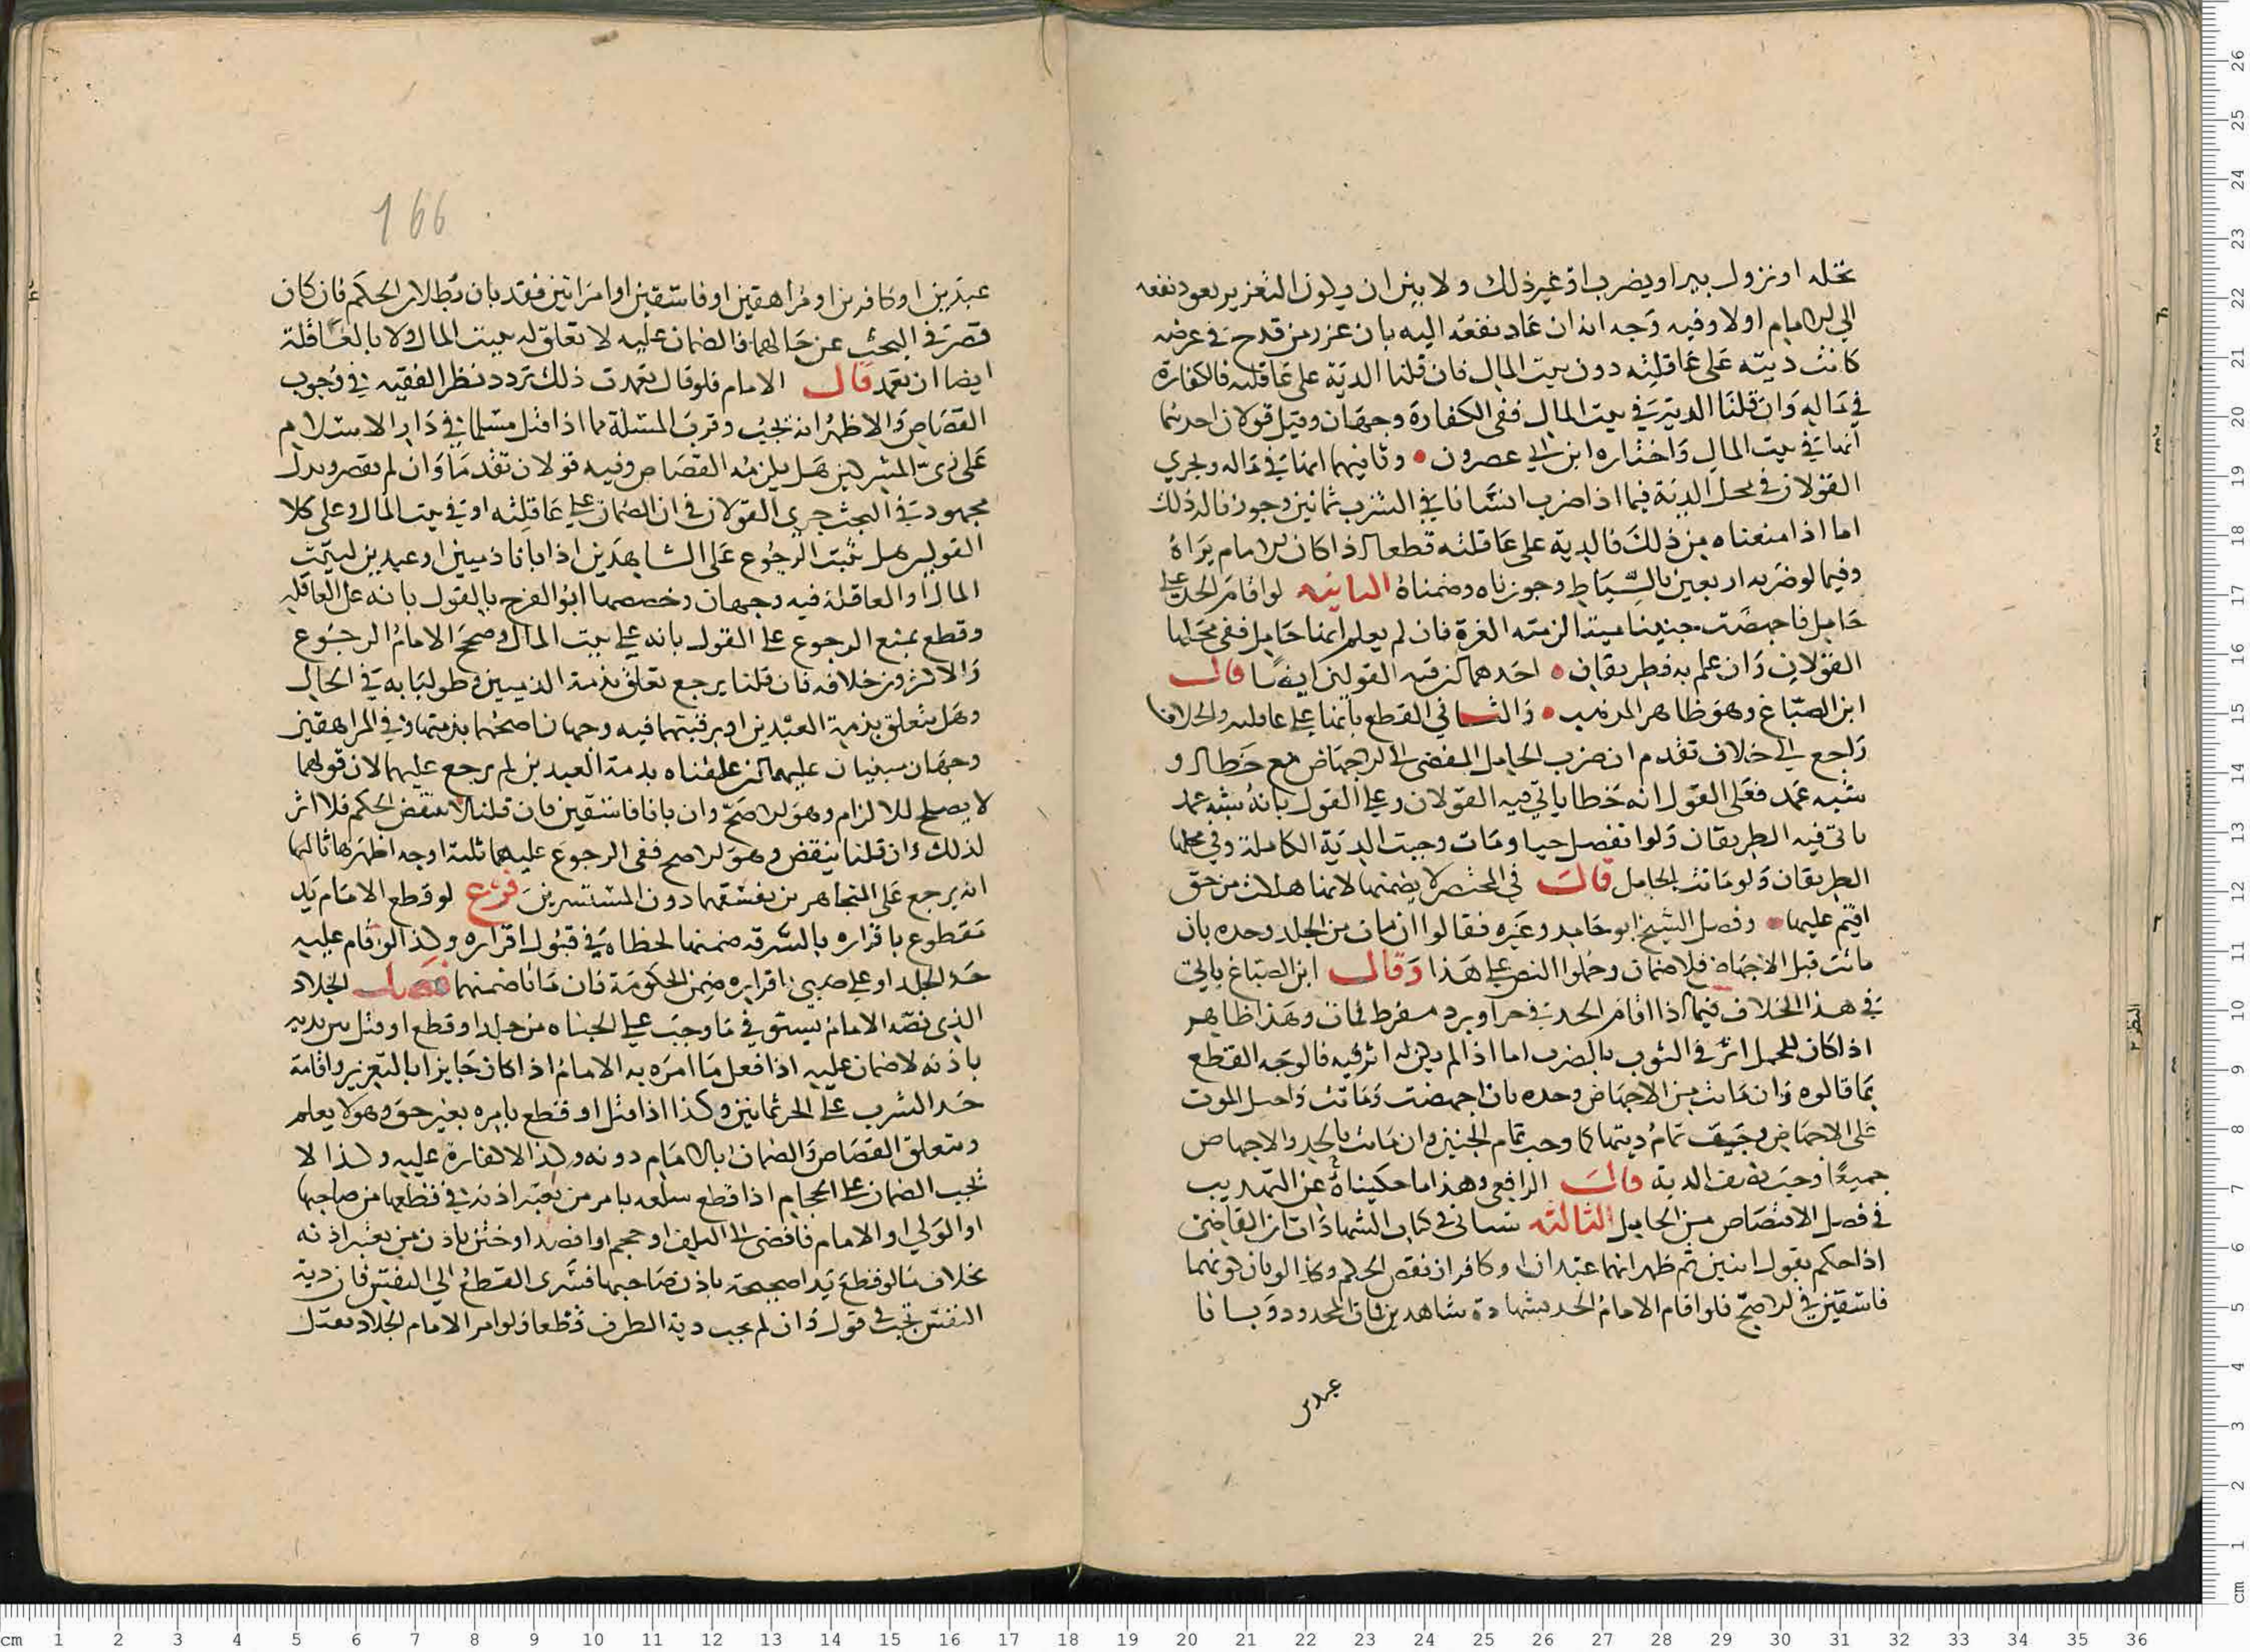 نخله او نزول بير او يضرب او غير ذلك ولا بين ان يكون التعزير يعود نفعه
الى الامام اولا وفيه وجه انه ان عاد نفعه اليه بان عزر من قدح في عرضه
كانت ديته على عاقلته دون بيت المال فان قلنا الدية على عاقلته فالكفارة
في ماله وان قلنا الدية في بيت المال ففي الكفارة وجهان وقيل قولان احدهما
انها في بيت المال واختاره ابن ابي عصرون • وثانيهما انها في ماله ويجري
القولان في محل الدية فيما اذا ضرب انسانا في الشرب ثمانين وجوزنا له ذلك
اما اذا منعناه من ذلك فالدية على عاقلته قطعا اذا كان الامام يراه
وفيما لو ضربه اربعين بالسياط وجوزناه وضمناه الثانيه لو اقام الحد على
حامل فاجهضت جنينا ميتا لزمته الغرة فان لم يعلم انها حامل ففي محلها
القولان وان علم به فطريقان • احدهما كن فيه القولين ايضا قال
ابن الصباغ وهو ظاهر المذهب • والثاني القطع بانها على عاقلته والخلاف
راجع الى خلاف تقدم ان ضرب الحامل المفضى الى الاجهاض مع خطا او
شبه عمد فعلى القول انه خطا ياتي فيه القولان وعلى القول بانه شبه عمد
ياتى فيه الطريقان ولو انفصل حيا ومات وجبت الدية الكاملة وفي محلها
الطريقان ولو ماتت الحامل قال في المختصر لا يضمنها لانها هلاك من حق
اقيم عليها • وفصل الشيخ ابو حامد وغيره فقالوا ان مات من الجلد وحده بان
ماتت قبل الاجهاض فلا ضمان وحملوا النص على هذا وقال ابن الصباغ ياتى
في هذا الخلاف فيما اذا اقام الحد في حر او برد مفرط فمات وهذا ظاهر
اذا كان للحمل اثر في الثوب بالضرب اما اذا لم يكن له اثر فيه فالوجه القطع
بما قالوه وان ماتت من الاجهاض وحده بان اجهضت وماتت واحيل الموت
على الاجهاض وجبت تمام ديتها كما وجب تمام الجنين وان ماتت بالحد والاجهاض
جميعا وجب نصف الدية قال الرافعى وهذا ما حكيناه عن التهذيب
في فصل الاقتصاص من الحامل الثالثه سياتى في كتاب الشهادات ان القاضى
اذا حكم بقول اثنين ثم ظهر انهما عبدان او كافران نقض الحكم وكذا لو بان كونهما
فاسقين في الاصح فلو اقام الامام الحد بشهادة شاهدين فمات المحدود وبانا
عبدين
166
عبدين او كافرين او مراهقين او فاسقين او امراتين فقد بان بطلان الحكم فان كان
قصر في البحث عن حالهما فالضمان عليه لا تعلق له ببيت المال ولا بالعاقلة
ايضا ان تعمد قال الامام فلو قال تعمدت ذلك تردد نظر الفقيه في وجوب
القصاص والاظهر انه يجب وقرب المسئلة مما اذا قتل مسلما في دار الاسلام
على زى المشركين هل يلزمه القصاص وفيه قولان تقدما وان لم يقصر وبذل
مجهوده في البحث جرى القولان في ان الضمان على عاقلته او في بيت المال وعلى كلا
القولين هل يثبت الرجوع على الشاهدين اذا بانا ذميين او عبدين لبيت
المال او العاقلة فيه وجهان وخصهما ابو الفرج بالقول بانه على العاقلة
وقطع بمنع الرجوع على القول بانه على بيت المال وصحح الامام الرجوع
والاكثرون خلافه فان قلنا يرجع تعلق بذمة الذميين وطولبا به في الحال
وهل يتعلق بذمة العبدين او برقبتهما فيه وجهان اصحهما بذمتهما وفي المراهقين
وجهان مبنيان عليهما كن علقناه بذمة العبدين لم يرجع عليهما لان قولهما
لا يصلح للالزام وهو الاصح وان بانا فاسقين فان قلنا لا ينقض الحكم فلا اثر
لذلك وان قلنا ينقض وهو الاصح ففي الرجوع عليهما ثلثة اوجه اظهرها ثالثها
انه يرجع على المتجاهرين بفسقهما دون المستسرين فرع لو قطع الامام يد
مقطوع باقراره بالسرقة ضمنها لخطاه في قبول اقراره وكذا لو اقام عليه
حد الجلد او على صبى باقراره ضمن الحكومة فان ماتا ضمنهما فصل الجلاد
الذى نصه الامام يستوفي ما وجب على الجناه من جلد او قطع او قتل بين يديه
باذنه لا ضمان عليه اذا فعل ما امره به الامام اذا كان جايزا بالتعزير واقامة
حد الشرب على الحر ثمانين وكذا اذا قتل او قطع بامره بغير حق وهو لا يعلم
ويتعلق القصاص والضمان بالامام دونه وكذا لا كفارة عليه وكذا لا
يجب الضمان على الحجام اذا قطع سلعه بامر من يعتبر اذنه في قطعها من صاحبها
او الولي او الامام فافضى الى التلف او حجم او افصد او ختن باذن من يعتبر اذنه
بخلاف ما لو قطع يدا صحيحة باذن صاحبها فسرى القطع الى النفس فان دية
النفس تجب في قول وان لم يجب دية الطرف قطعا ولو امر الامام الجلاد بقتل